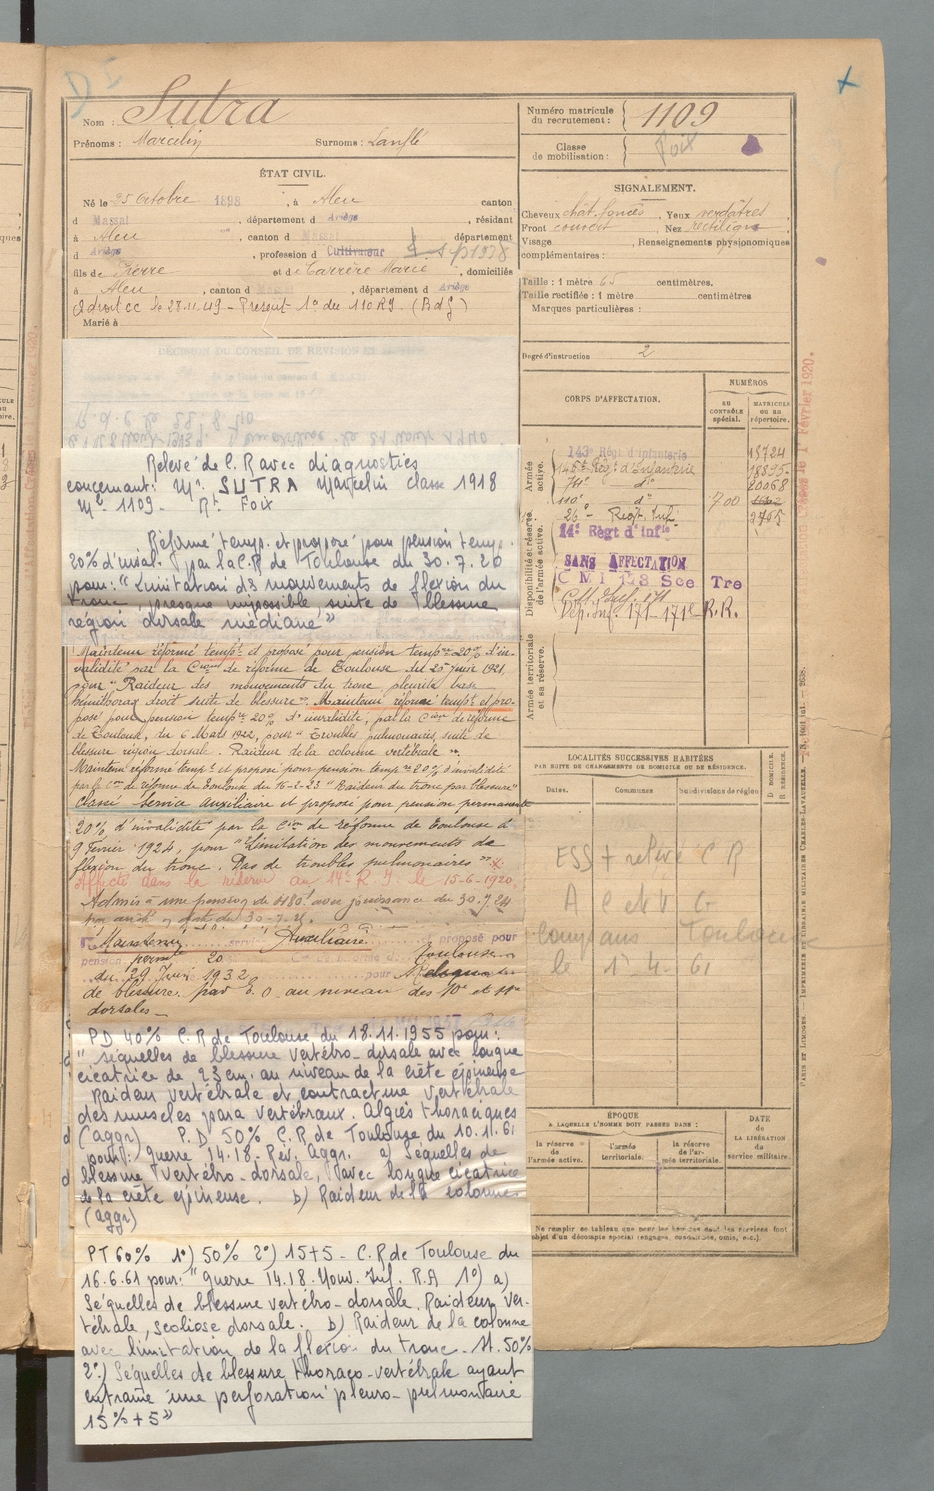 Nom : Sutra
Prénoms : Marcelin Surnoms : Lanflé
ÉTAT CIVIL.
Né le 25 Octobre 1898, à Aleu canton
d Massat, département d Ariège, résidant
à Aleu, canton d Massat département
d Ariège, profession d Cultivateur
fils de Pierre et de Carrère Marie, domiciliés
à Aleu, canton d Massat, département d Ariège
A droit cc le 28.11.49 - Présent 1° du 110 RI. (BdJ)
Marié à
Numéro matricule
du recrutement : 1109
Classe
de mobilisation : Foix
SIGNALEMENT.
Cheveux chât. foncés, Yeux verdâtres
Front couvert, Nez rectiligne
Visage, Renseignements physionomiques
complémentaires :
Taille : 1 mètre 65 centimètres.
Taille rectifiée : 1 mètre centimètres
Marques particulières :
Degré d'instruction 2
DÉCISION DU CONSEIL DE RÉVISION ET
Relevé de C.R avec diagnostics
concernant : Mr. SUTRA Marcelin classe 1918
Mle 1109 - Rt. Foix
Réformé temp. et proposé pour pension temp.
20% d'inval. par la C.R de Toulouse du 30.7.20
pour : "Limitation des mouvements de flexion du
tronc, presque impossible, suite de blessure
région dorsale médiane"
Maintenu réformé tempre et proposé pour pension tempre 20% d'in-
validité par la Cion de réforme de Toulouse du 25 juin 1921,
pour "Raideur des mouvements du tronc pleurite base
hémithorax droit suite de blessure". Maintenu réformé tempre et pro-
posé pour pension tempre 20% d'invalidité, par la Cion de réforme
de Toulouse, du 6 Mars 1922, pour "Troubles pulmonaires suite de
blessure région dorsale. Raideur de la colonne vertébrale".
Maintenu réformé tempre et proposé pour pension tempre 20% d'invalidité
par la Con de réforme de Toulouse du 16-2-23 "Raideur du tronc par blessure"
Classé Service Auxiliaire et proposé pour pension permanente
20% d'invalidité par la Cion de réforme de Toulouse du
9 Février 1924, pour "Limitation des mouvements de
flexion du tronc. Pas de troubles pulmonaires"
Affecté dans la réserve au 14e R.I. le 15-6-1920.
Admis à une pension de 480f avec jouissance du 30.7.24
par arrêté
Maintenu service Auxiliaire et proposé pour
pension perm. 20 Toulouse
du 29 1932 pour
de blessure par E.O au niveau des 10e et 11e
dorsales -
PD 40% C.R de Toulouse du 18.11.1955 pour :
"séquelles de blessure vertébro-dorsale avec longue
cicatrice de 23 cm. au niveau de la crête épineuse
Raideur vertébrale et contracture vertébrale
des muscles para vertébraux. Algies thoraciques
(aggr) P.D 50% C.R, de Toulouse du 10.1.61
pour : guerre 14.18. Rév. Aggr. a) Séquelles de
blessure vertébro-dorsale, avec longue cicatrice
de la crête épineuse. b) Raideur de la colonne
(aggr)
PT 60% 1°) 50% 2°) 15+5 - C.R de Toulouse du
16.6.61 pour : "guerre 14.18. Nouv. Inf. R.A 1°) a)
Séquelles de blessure vertébro-dorsale. Raideur ver-
tébrale, scoliose dorsale. b) Raideur de la colonne
avec limitation de la flexion du tronc - 50%
2°) Séquelles de blessure thoraco-vertébrale ayant
entraîné une perforation pleuro-pulmonaire
15% + 5"
CORPS D'AFFECTATION.
NUMÉROS
AU CONTRÔLE spécial.
MATRICULE OU AU répertoire.
Armée active.
143e Régt d'infanterie 18724
Régt d'Infanterie
20068
110e do 700
26e Régt. Inf. 2705
Disponibilité et réserve de l'armée active.
14e Régt d'infie
SANS AFFECTATION
Armée territoriale et sa réserve.
LOCALITÉS SUCCESSIVES HABITÉES
PAR SUITE DE CHANGEMENTS DE DOMICILE OU DE RÉSIDENCE.
Dates. Communes Subdivisions de région D. DOMICILE. R. RÉSIDENCE.
ESS + relevé CR
Toulouse
le 1-4-61
ÉPOQUE
A LAQUELLE L'HOMME DOIT PASSER DANS :
la réserve de l'armée active.
l'armée territoriale.
la réserve de l'armée territoriale.
DATE de LA LIBÉRATION du service militaire.
Ne remplir ce tableau que pour les hommes dont les services font
objet d'un décompte spécial (engagés, condamnés, omis, etc.).
PARIS ET LIMOGES. — IMPRIMERIE ET LIBRAIRIE MILITAIRES CHARLES-LAVAUZELLE.